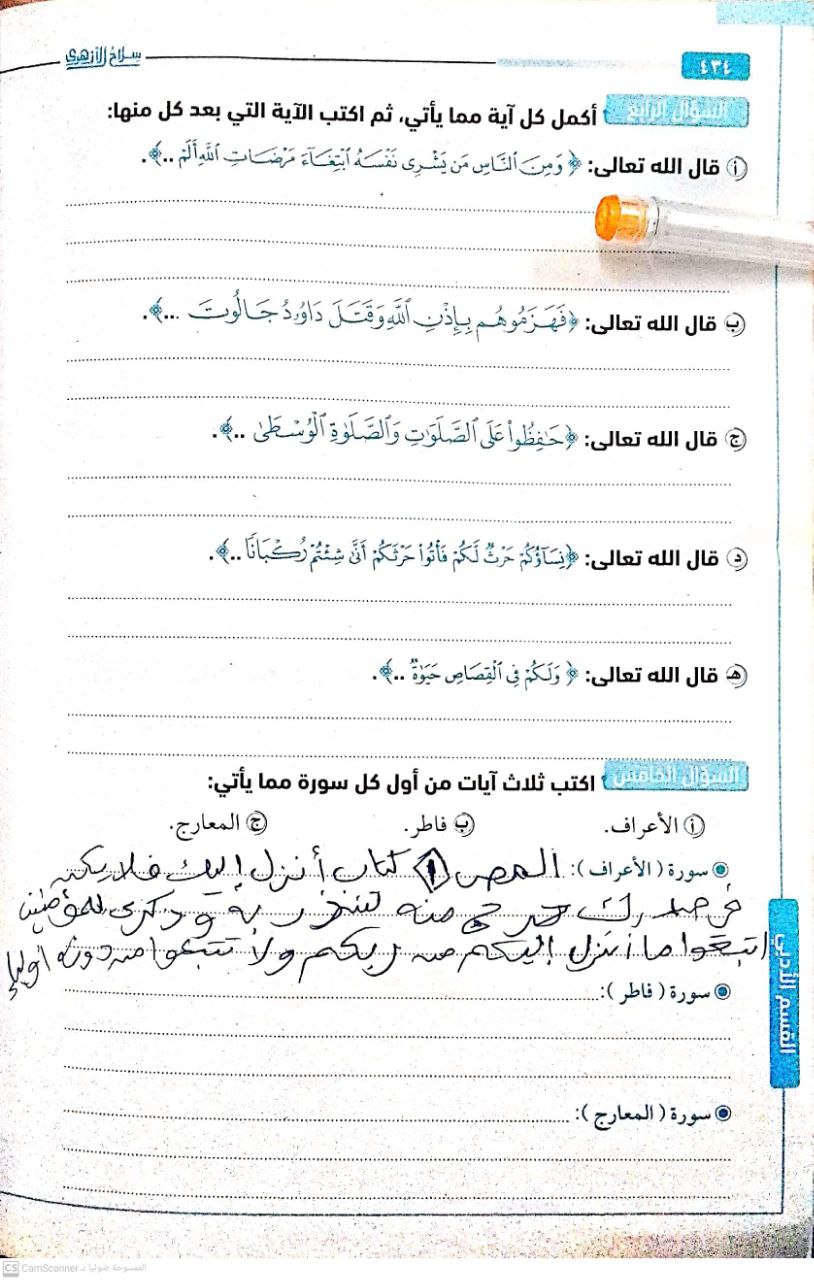 ٤٣٤
سلاح الأزهري
السؤال الرابع أكمل كل آية مما يأتي، ثم اكتب الآية التي بعد كل منها:
أ قال الله تعالى: ﴿ وَمِنَ ٱلنَّاسِ مَن يَشْرِى نَفْسَهُ ٱبْتِغَآءَ مَرْضَاتِ ٱللَّهِ أَلَمْ ..﴾.
ب قال الله تعالى: ﴿فَهَزَمُوهُم بِإِذْنِ ٱللَّهِ وَقَتَلَ دَاوُۥدُ جَالُوتَ ...﴾.
ج قال الله تعالى: ﴿حَٰفِظُوا۟ عَلَى ٱلصَّلَوَٰتِ وَٱلصَّلَوٰةِ ٱلْوُسْطَىٰ ..﴾.
د قال الله تعالى: ﴿نِسَآؤُكُمْ حَرْثٌ لَّكُمْ فَأْتُوا۟ حَرْثَكُمْ أَنَّىٰ شِئْتُمْ رُكْبَانًا ..﴾.
هـ قال الله تعالى: ﴿ وَلَكُمْ فِى ٱلْقِصَاصِ حَيَوٰةٌ ..﴾.
السؤال الخامس اكتب ثلاث آيات من أول كل سورة مما يأتي:
أ الأعراف. ب فاطر. ج المعارج.
سورة ( الأعراف ): المص ١ كتاب أنزل إليك فلا يكن
في صدرك حرج منه لتنذر به وذكرى للمؤمنين
اتبعوا ما أنزل إليكم من ربكم ولا تتبعوا من دونه أولياء
سورة ( فاطر ):
سورة ( المعارج ):
القسم الأدبي
CS CamScanner الممسوحة ضوئيا بـ